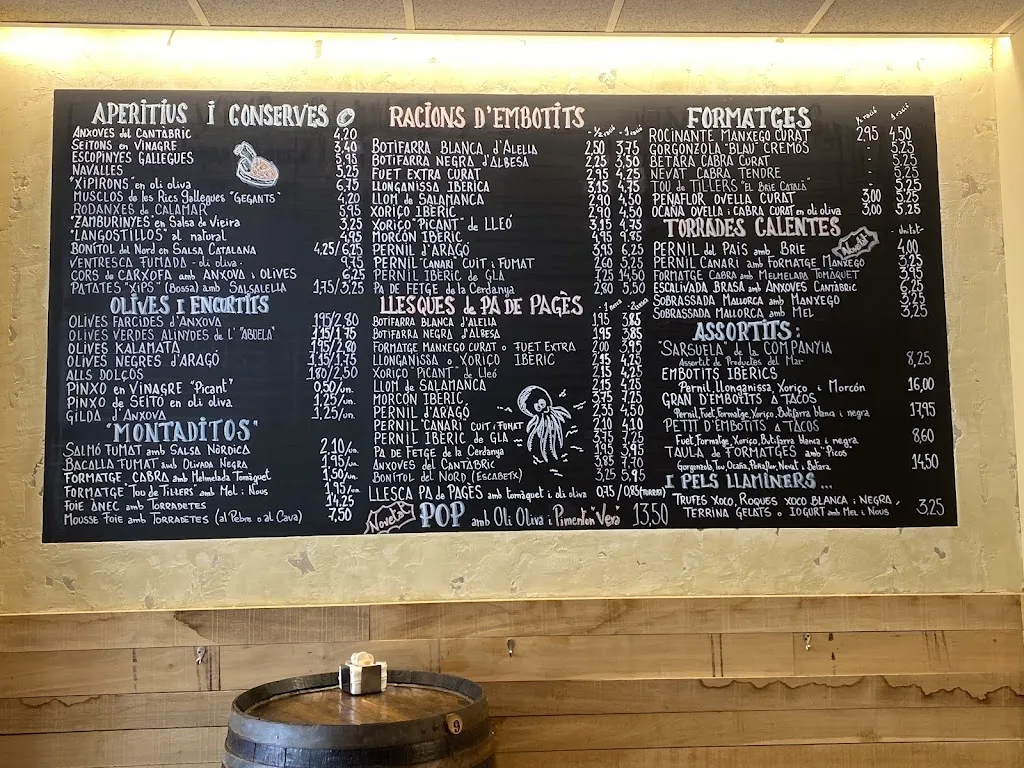 APERITIUS I CONSERVES
ANXOVES del CANTÀBRIC 4,20
SEITONS en VINAGRE 3,40
ESCOPINYES GALLEGUES 5,95
NAVALLES 5,25
"XIPIRONS" en oli oliva 6,75
MUSCLOS de les Ries Gallegues "GEGANTS" 4,20
RODANXES de CALAMAR 5,95
"ZAMBURINYES" en Salsa de Vieira 3,25
"LANGOSTILLOS" al natural 4,95
BONÍTOL del Nord en SALSA CATALANA 4,25/6,25
VENTRESCA FUMADA - oli oliva - 9,75
CORS de CARXOFA amb ANXOVA i OLIVES 6,25
PATATES "XIPS" (Bossa) amb SALSALELIA 1,75/3,25
OLIVES I ENCURTITS
OLIVES FARCIDES d'ANXOVA 1,95/2,80
OLIVES VERDES ALINYDES de L' "ABUELA" 1,15/1,75
OLIVES KALAMATA 1,95/2,80
OLIVES NEGRES d'ARAGÓ 1,15/1,75
ALLS DOLÇOS 1,80/2,50
PINXO en VINAGRE "Picant" 0,50/un.
PINXO de SEITÓ en oli oliva 1,25/un.
GILDA d'ANXOVA 1,25/un.
"MONTADITOS"
SALMÓ FUMAT amb SALSA NÒRDICA 2,10/un.
BACALLÀ FUMAT amb OLIVADA NEGRA 1,95/un.
FORMATGE CABRA amb Melmelada Tomàquet 1,50/un.
FORMATGE TOU de TILLERS amb MEL i NOUS 1,95/un.
FOIE ANEC amb TORRADETES 14,25
MOUSSE FOIE amb TORRADETES (al Pebre o al Cava) 7,50
RACIONS D'EMBOTITS
- ½ ració - 1 ració
BOTIFARRA BLANCA d'ALELLA 2,50 3,75
BOTIFARRA NEGRA d'ALBESA 2,25 3,50
FUET EXTRA CURAT 2,95 4,25
LLONGANISSA IBÈRICA 3,15 4,75
LLOM de SALAMANCA 2,90 4,50
XORIÇO IBÈRIC 2,90 4,50
XORIÇO "PICANT" de LLEÓ 3,15 4,75
MORCÓN IBÈRIC
PERNIL d'ARAGÓ 3,95 6,25
PERNIL "CANARI" CUIT i FUMAT
PERNIL IBÈRIC de GLÀ 7,25 14,50
PA de FETGE de la Cerdanya 2,80 5,50
LLESQUES de PA DE PAGÈS
BOTIFARRA BLANCA d'ALELLA 1,95 3,85
BOTIFARRA NEGRA d'ALBESA 1,95 3,85
FORMATGE MANXEGO CURAT o FUET EXTRA 2,00 3,95
LLONGANISSA o XORIÇO IBÈRIC 2,15 4,25
XORIÇO "PICANT" de Lleó 2,15 4,25
LLOM de SALAMANCA 2,15 4,25
MORCÓN IBÈRIC
PERNIL d'ARAGÓ 2,35 4,50
PERNIL "CANARI" CUIT i FUMAT 2,10 4,10
PERNIL IBÈRIC de GLÀ 3,75 7,25
PA de FETGE de la Cerdanya 1,95 3,95
ANXOVES del CANTÀBRIC 3,85 7,70
BONÍTOL del NORD (ESCABETX) 3,25 5,95
LLESCA PA de PAGÈS amb tomàquet i oli oliva 0,75 / 0,85 (TORRAT)
Novetat POP amb Oli Oliva i Pimentón "Vera" 13,50
FORMATGES
½ ració 1 ració
ROCINANTE MANXEGO CURAT 2,95 4,50
GORGONZOLA "BLAU" CREMÓS - 5,25
BETARA CABRA CURAT - 5,25
NEVAT CABRA TENDRE - 5,25
TOU de TILLERS "EL BRIE CATALÀ" - 5,25
PEÑAFLOR OVELLA CURAT 3,00 5,25
OCAÑA OVELLA i CABRA CURAT en oli oliva 3,00 5,25
TORRADES CALENTES
- unitat -
Novetat
PERNIL del PAÍS amb BRIE 4,00
PERNIL CANARI amb FORMATGE MANXEGO 3,25
FORMATGE CABRA amb MELMELADA TOMÀQUET 3,95
ESCALIVADA BRASA amb ANXOVES CANTÀBRIC 6,25
SOBRASSADA MALLORCA amb MANXEGO 3,25
SOBRASSADA MALLORCA amb MEL 3,25
ASSORTITS:
"SARSUELA" de la COMPANYIA
Assortit de Productes del Mar 8,25
EMBOTITS IBÈRICS
Pernil, Llonganissa, Xoriço i Morcón 16,00
GRAN D'EMBOTITS A TACOS
Pernil, Fuet, Formatge, Xoriço, Butifarra blanca i negra 17,95
PETIT D'EMBOTITS A TACOS
Fuet, Formatge, Xoriço, Butifarra blanca i negra 8,60
TAULA de FORMATGES amb "Picos"
Gorgonzola, Tou, Ocaña, Peñaflor, Nevat i Betara 14,50
I PELS LLAMINERS...
TRUFES XOCO, ROQUES XOCO BLANCA i NEGRA,
TERRINA GELATS o IOGURT amb Mel i Nous 3,25
9